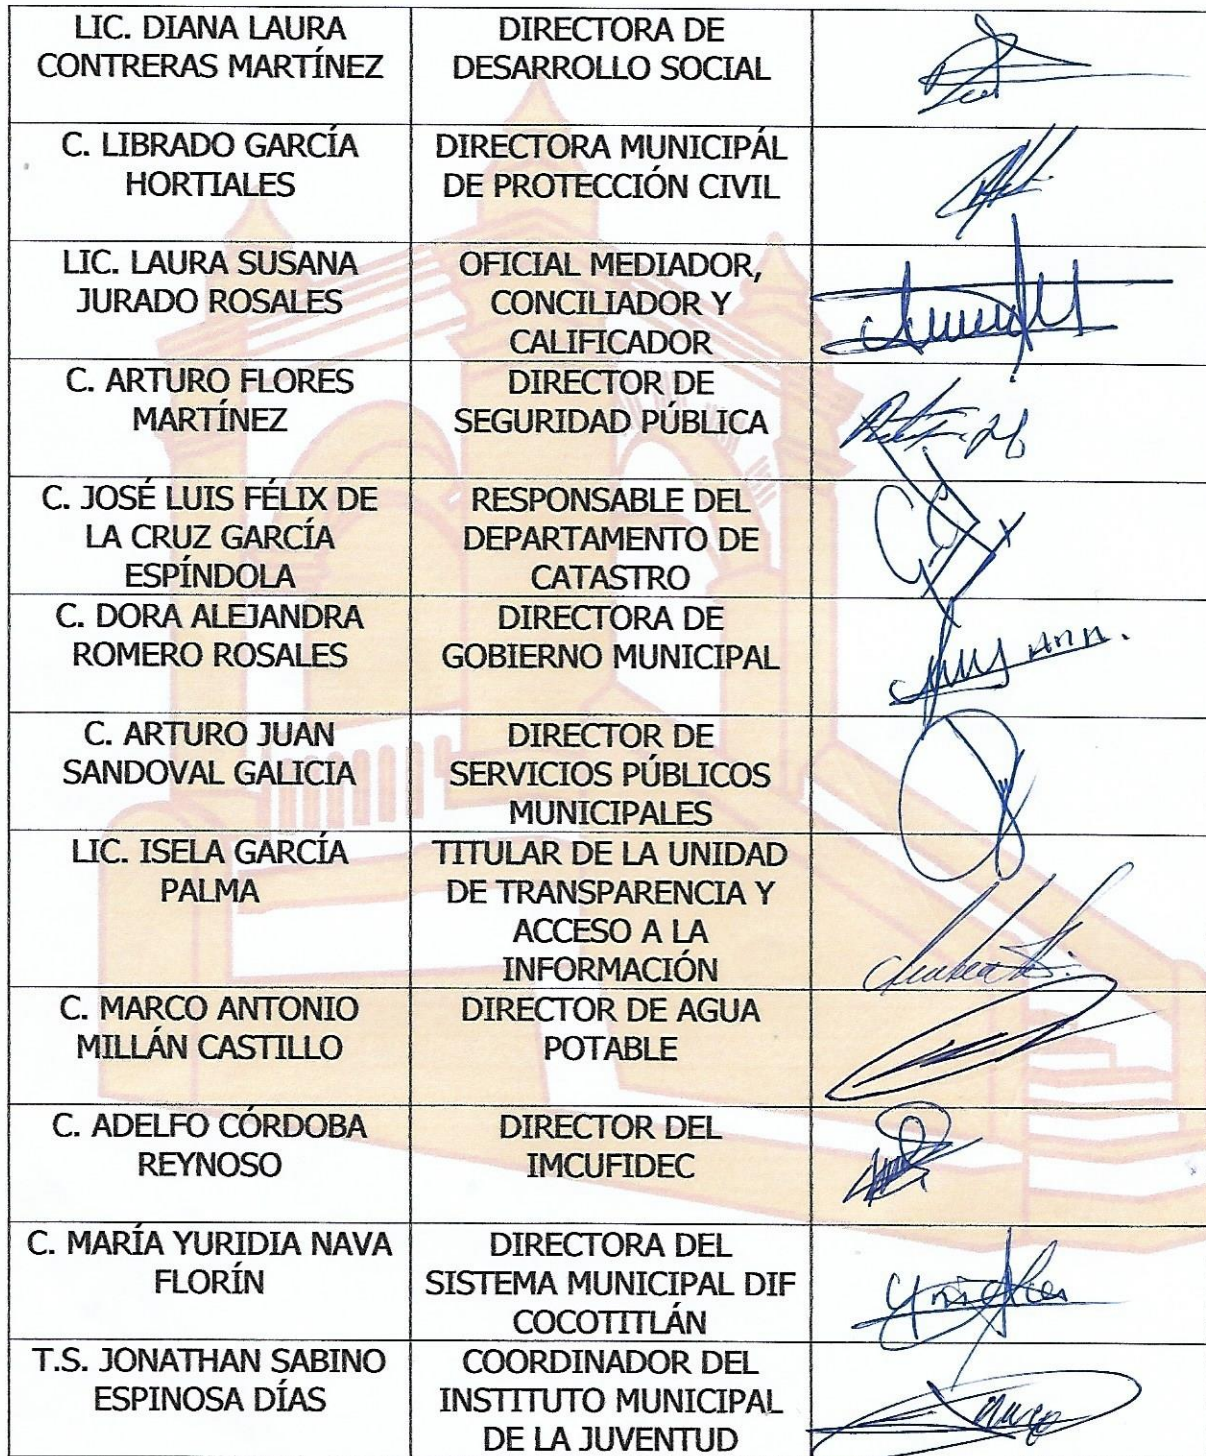 LIC. DIANA LAURA
CONTRERAS MARTÍNEZ
DIRECTORA DE
DESARROLLO SOCIAL
C. LIBRADO GARCÍA
HORTIALES
DIRECTORA MUNICIPÁL
DE PROTECCIÓN CIVIL
LIC. LAURA SUSANA
JURADO ROSALES
OFICIAL MEDIADOR,
CONCILIADOR Y
CALIFICADOR
C. ARTURO FLORES
MARTÍNEZ
DIRECTOR DE
SEGURIDAD PÚBLICA
C. JOSÉ LUIS FÉLIX DE
LA CRUZ GARCÍA
ESPÍNDOLA
RESPONSABLE DEL
DEPARTAMENTO DE
CATASTRO
C. DORA ALEJANDRA
ROMERO ROSALES
DIRECTORA DE
GOBIERNO MUNICIPAL
C. ARTURO JUAN
SANDOVAL GALICIA
DIRECTOR DE
SERVICIOS PÚBLICOS
MUNICIPALES
LIC. ISELA GARCÍA
PALMA
TITULAR DE LA UNIDAD
DE TRANSPARENCIA Y
ACCESO A LA
INFORMACIÓN
C. MARCO ANTONIO
MILLÁN CASTILLO
DIRECTOR DE AGUA
POTABLE
C. ADELFO CÓRDOBA
REYNOSO
DIRECTOR DEL
IMCUFIDEC
C. MARÍA YURIDIA NAVA
FLORÍN
DIRECTORA DEL
SISTEMA MUNICIPAL DIF
COCOTITLÁN
T.S. JONATHAN SABINO
ESPINOSA DÍAS
COORDINADOR DEL
INSTITUTO MUNICIPAL
DE LA JUVENTUD